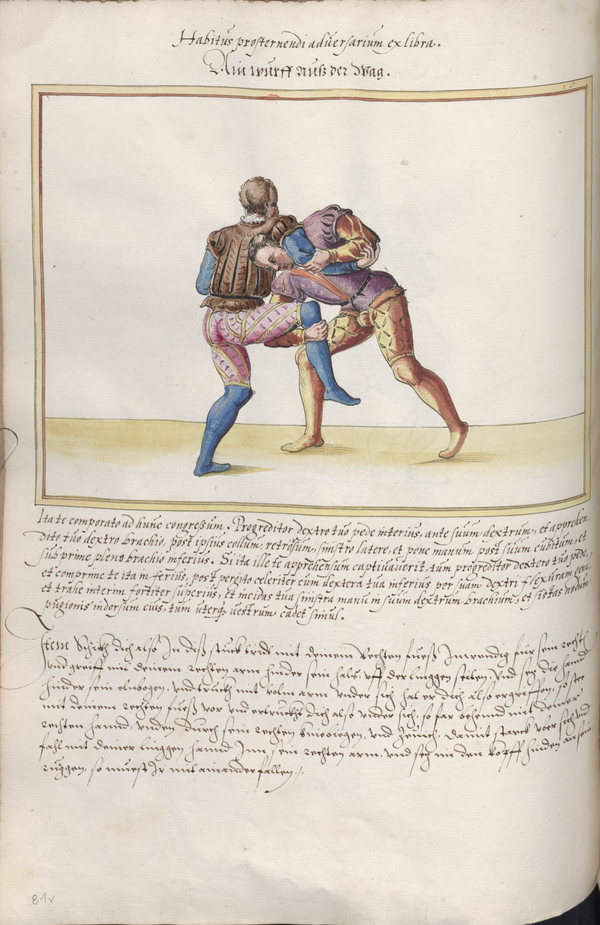 Habitus prosternendi adversarium ex libra.
Ain wurff auß der Wag.
Ita te comparato ad hunc congressum. Progreditor dextro tuo pede interius, ante suum dextrum, et apprehen
dito tuo dextro brachio, post ipsius collum, retrorsum, sinistro latere, et pone manum post suum cubitum, et
sub prime pleno brachio inferius. Si ita ille te apprehensum captivaverit, tum progreditor dextero tuo pede,
et comprime te ita inferius, postq celeriter cum dextera tua inferius per suam dextri flexuram genu,
et trahe interim fortiter superius, et incidas tua sinistra manu in suum dextrum brachium, et sistas
pugionis in dorsum eius, tum uterq vestrum cadet simul.
Item Schickh dich also In deß stuckh mit deinem Rechten fuess Inwendig für sein rechts
Vnd greiff mit deinem rechten arm hinder sein hals vff der linggen seiten, Vnd setz die hannd
hinder sein elnbogen, vnd truckh mit voln arm vnder sich, hat er dich also ergriffen, so trit
mit deinem rechten fuess vor vnd ertruckh dich also vnder sich, so far behennd mit deiner
rechten hannd, vnden durch sein rechten kniebiegen, vnd zeuch damit starck vber sich vnd
fahl mit deiner linggen hannd Inn sein rechten arm, vnd setz im den kopff hinden an sein
ruggen, so muest Ir mit ainander fallen.
81v